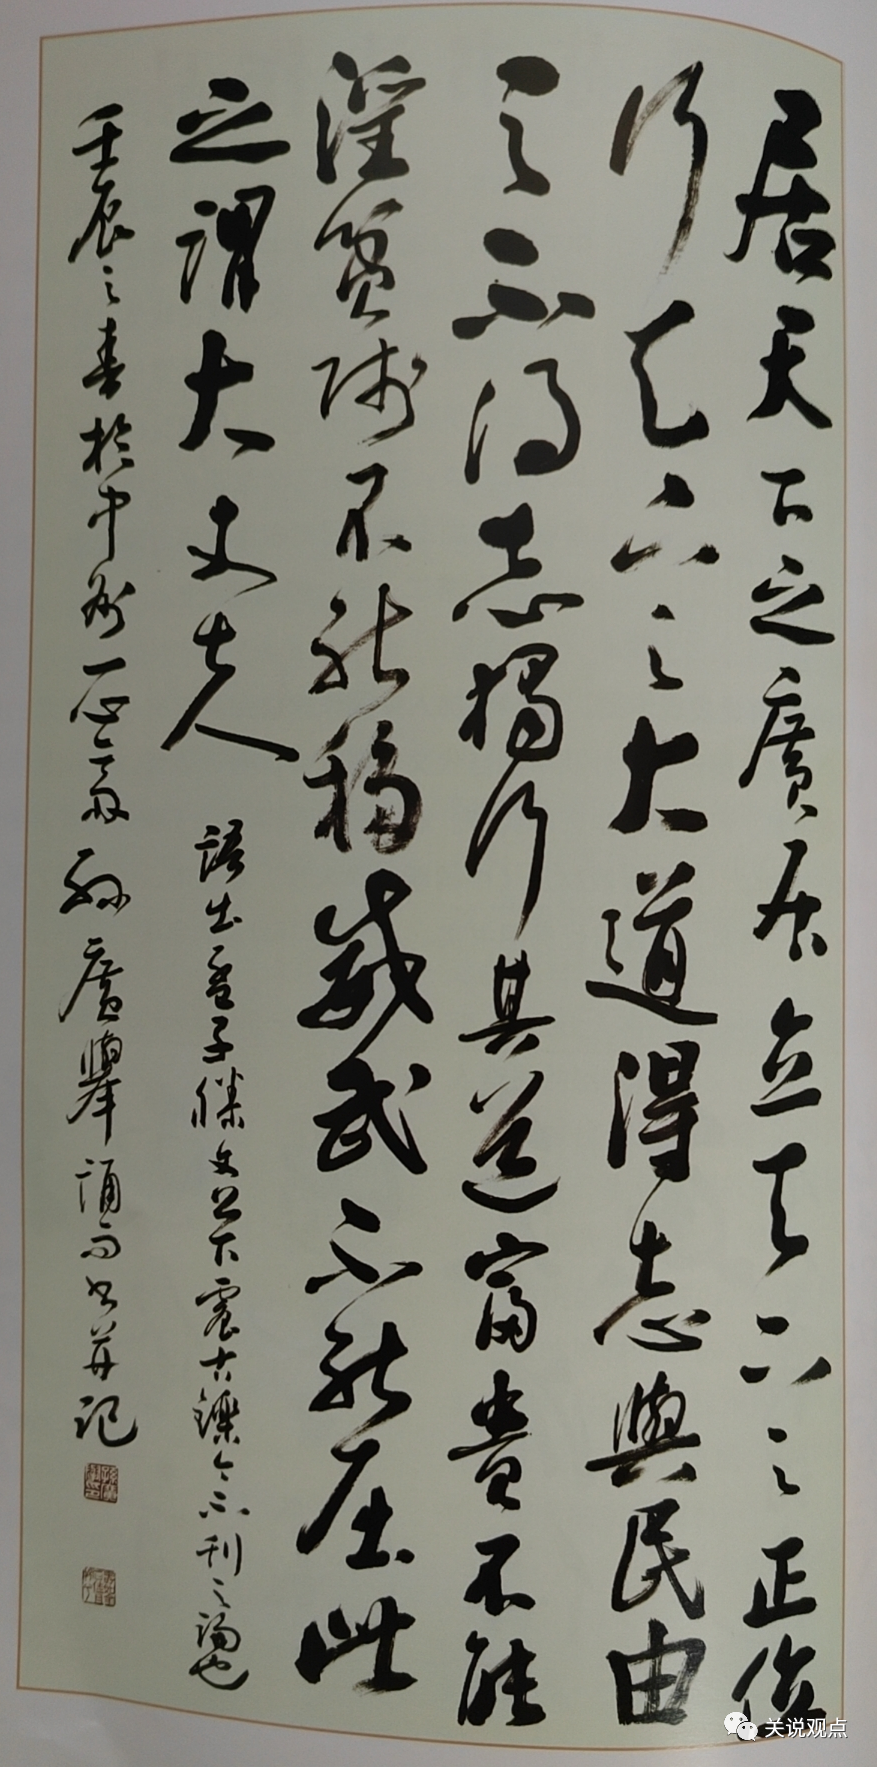 居天下之廣居立天下之正位
行天下之大道得志與民由
之不得志獨行其道富貴不能
淫貧賤不能移威武不能屈此
之謂大丈夫
語出孟子滕文公下震古鑠今不刊之論也
壬辰之春於中州一心齋孫廣舉誦而書并記
关说观点